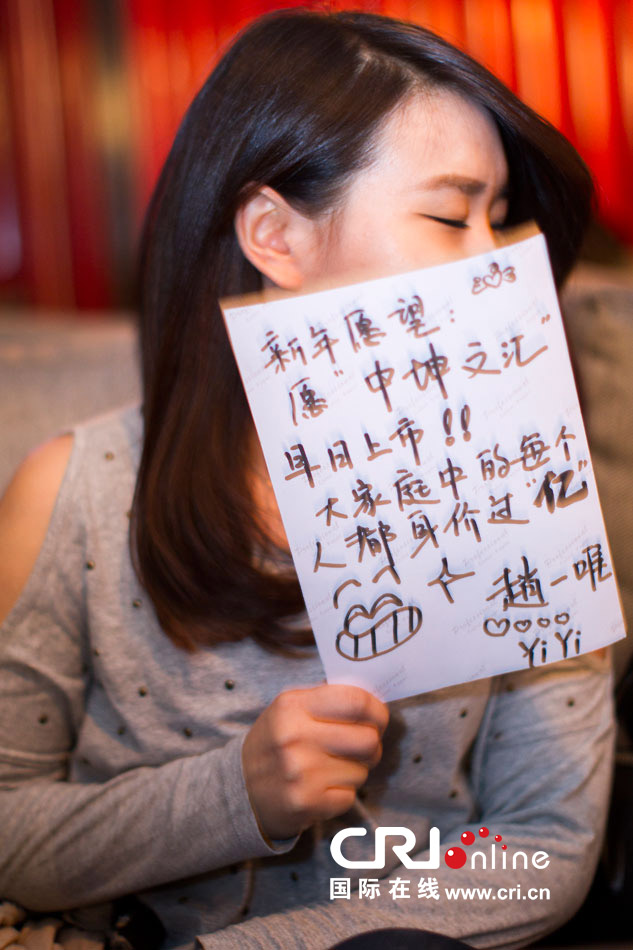 新年愿望：
愿“中坤文汇”
早日上市!!
大家庭中的每个
人都身价过“亿”
赵一唯
YiYi
CRI online
国际在线 www.cri.cn